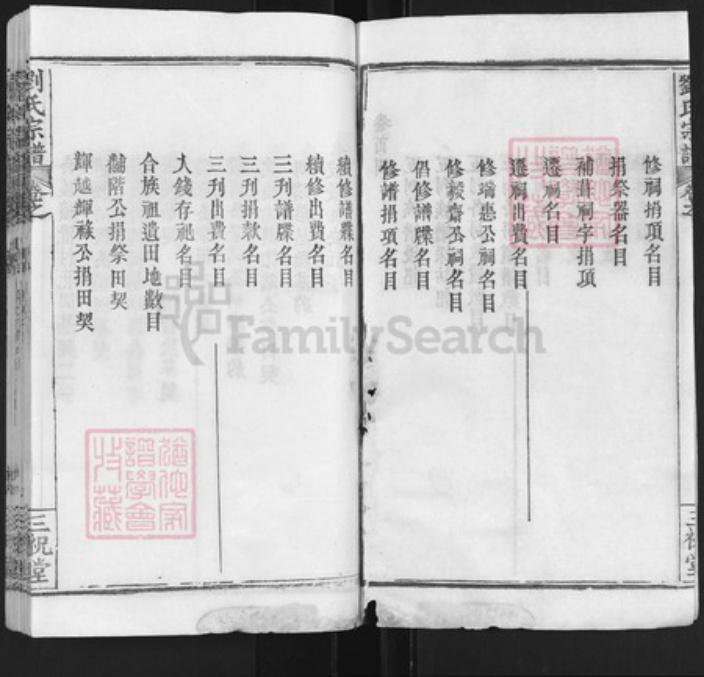 劉氏宗譜
卷之
三祝堂
修祠捐項名目
捐祭器名目
補葺祠宇捐項
遷祠名目
遷祠出費名目
修瑞惠公祠名目
修毅齋公祠名目
倡修譜牒名目
修譜捐項名目
續修譜牒名目
續修出費名目
三刋譜牒名目
三刋捐款名目
三刋出費名目
入錢存祀名目
合族祖遺田地數目
公捐祭田契
輝越輝祿公捐田契
劉氏宗譜
卷之
三祝堂
FamilySearch
譜學會
收藏